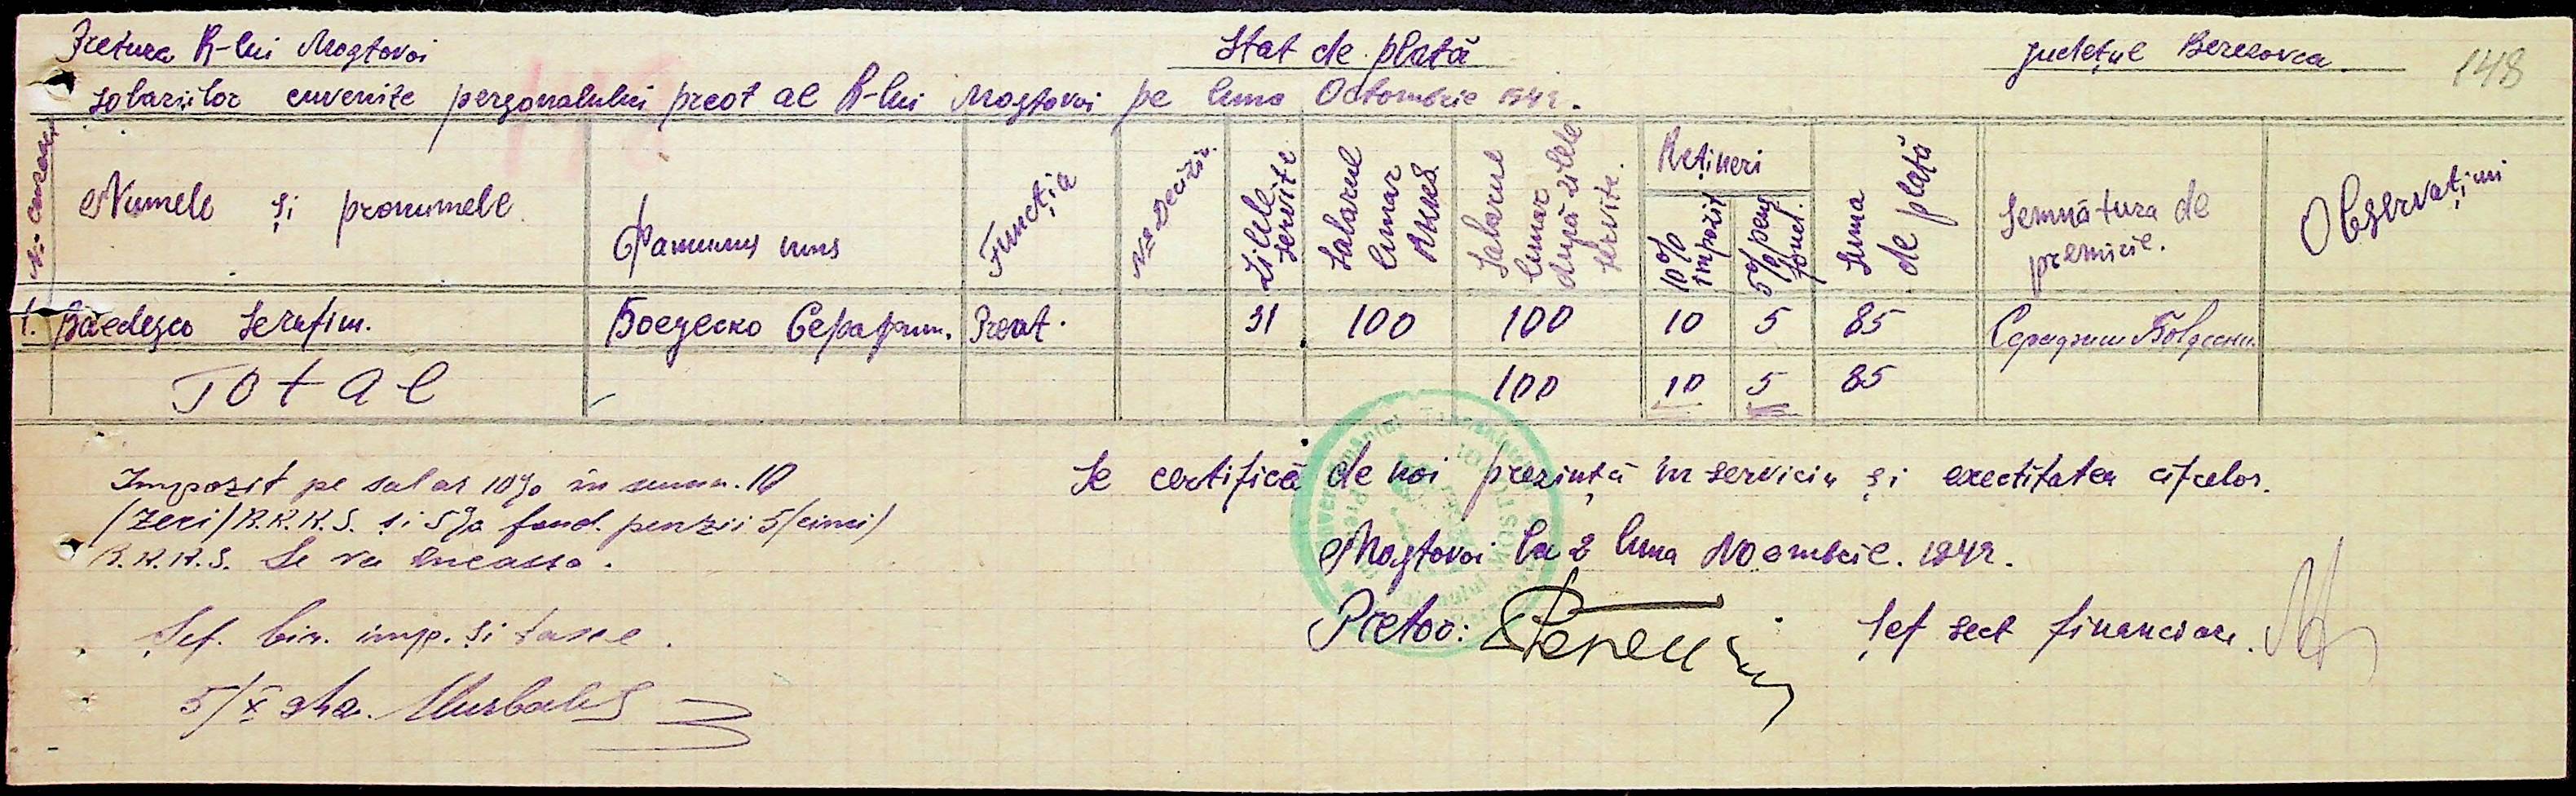 Pretura R-lui Mostovoi Stat de plată Județul Berezovca 148
Solariilor cuvenite personalului preot al R-lui Mostovoi pe luna Octombrie 1942.
Numele și pronumele
Фамилия имя
Funcția
№ Decizii.
Zilele servite
Salarul lunar
Salarul lunar după zilele servite.
Rețineri
10% impozit
5% pens fond.
Suma de plată
Semnătura de premiere.
Observațiuni
1. Boedesco Serafim. Боедеско Серафим. Preot. 31 100 100 10 5 85
Total 100 10 5 85
Impozit pe salar 10% în suma. 10
(Zeci) R.K.K.S. și 5% fond. penzii 5 (cinci)
R.K.K.S. Se va încassa.
Se certifică de noi prezintă în serviciu și exectitatea cifrelor.
Mostovoi la 2 luna Noembrie. 1942.
Șef. bir. imp. și taxe.
Pretor: Șef sect financiare.